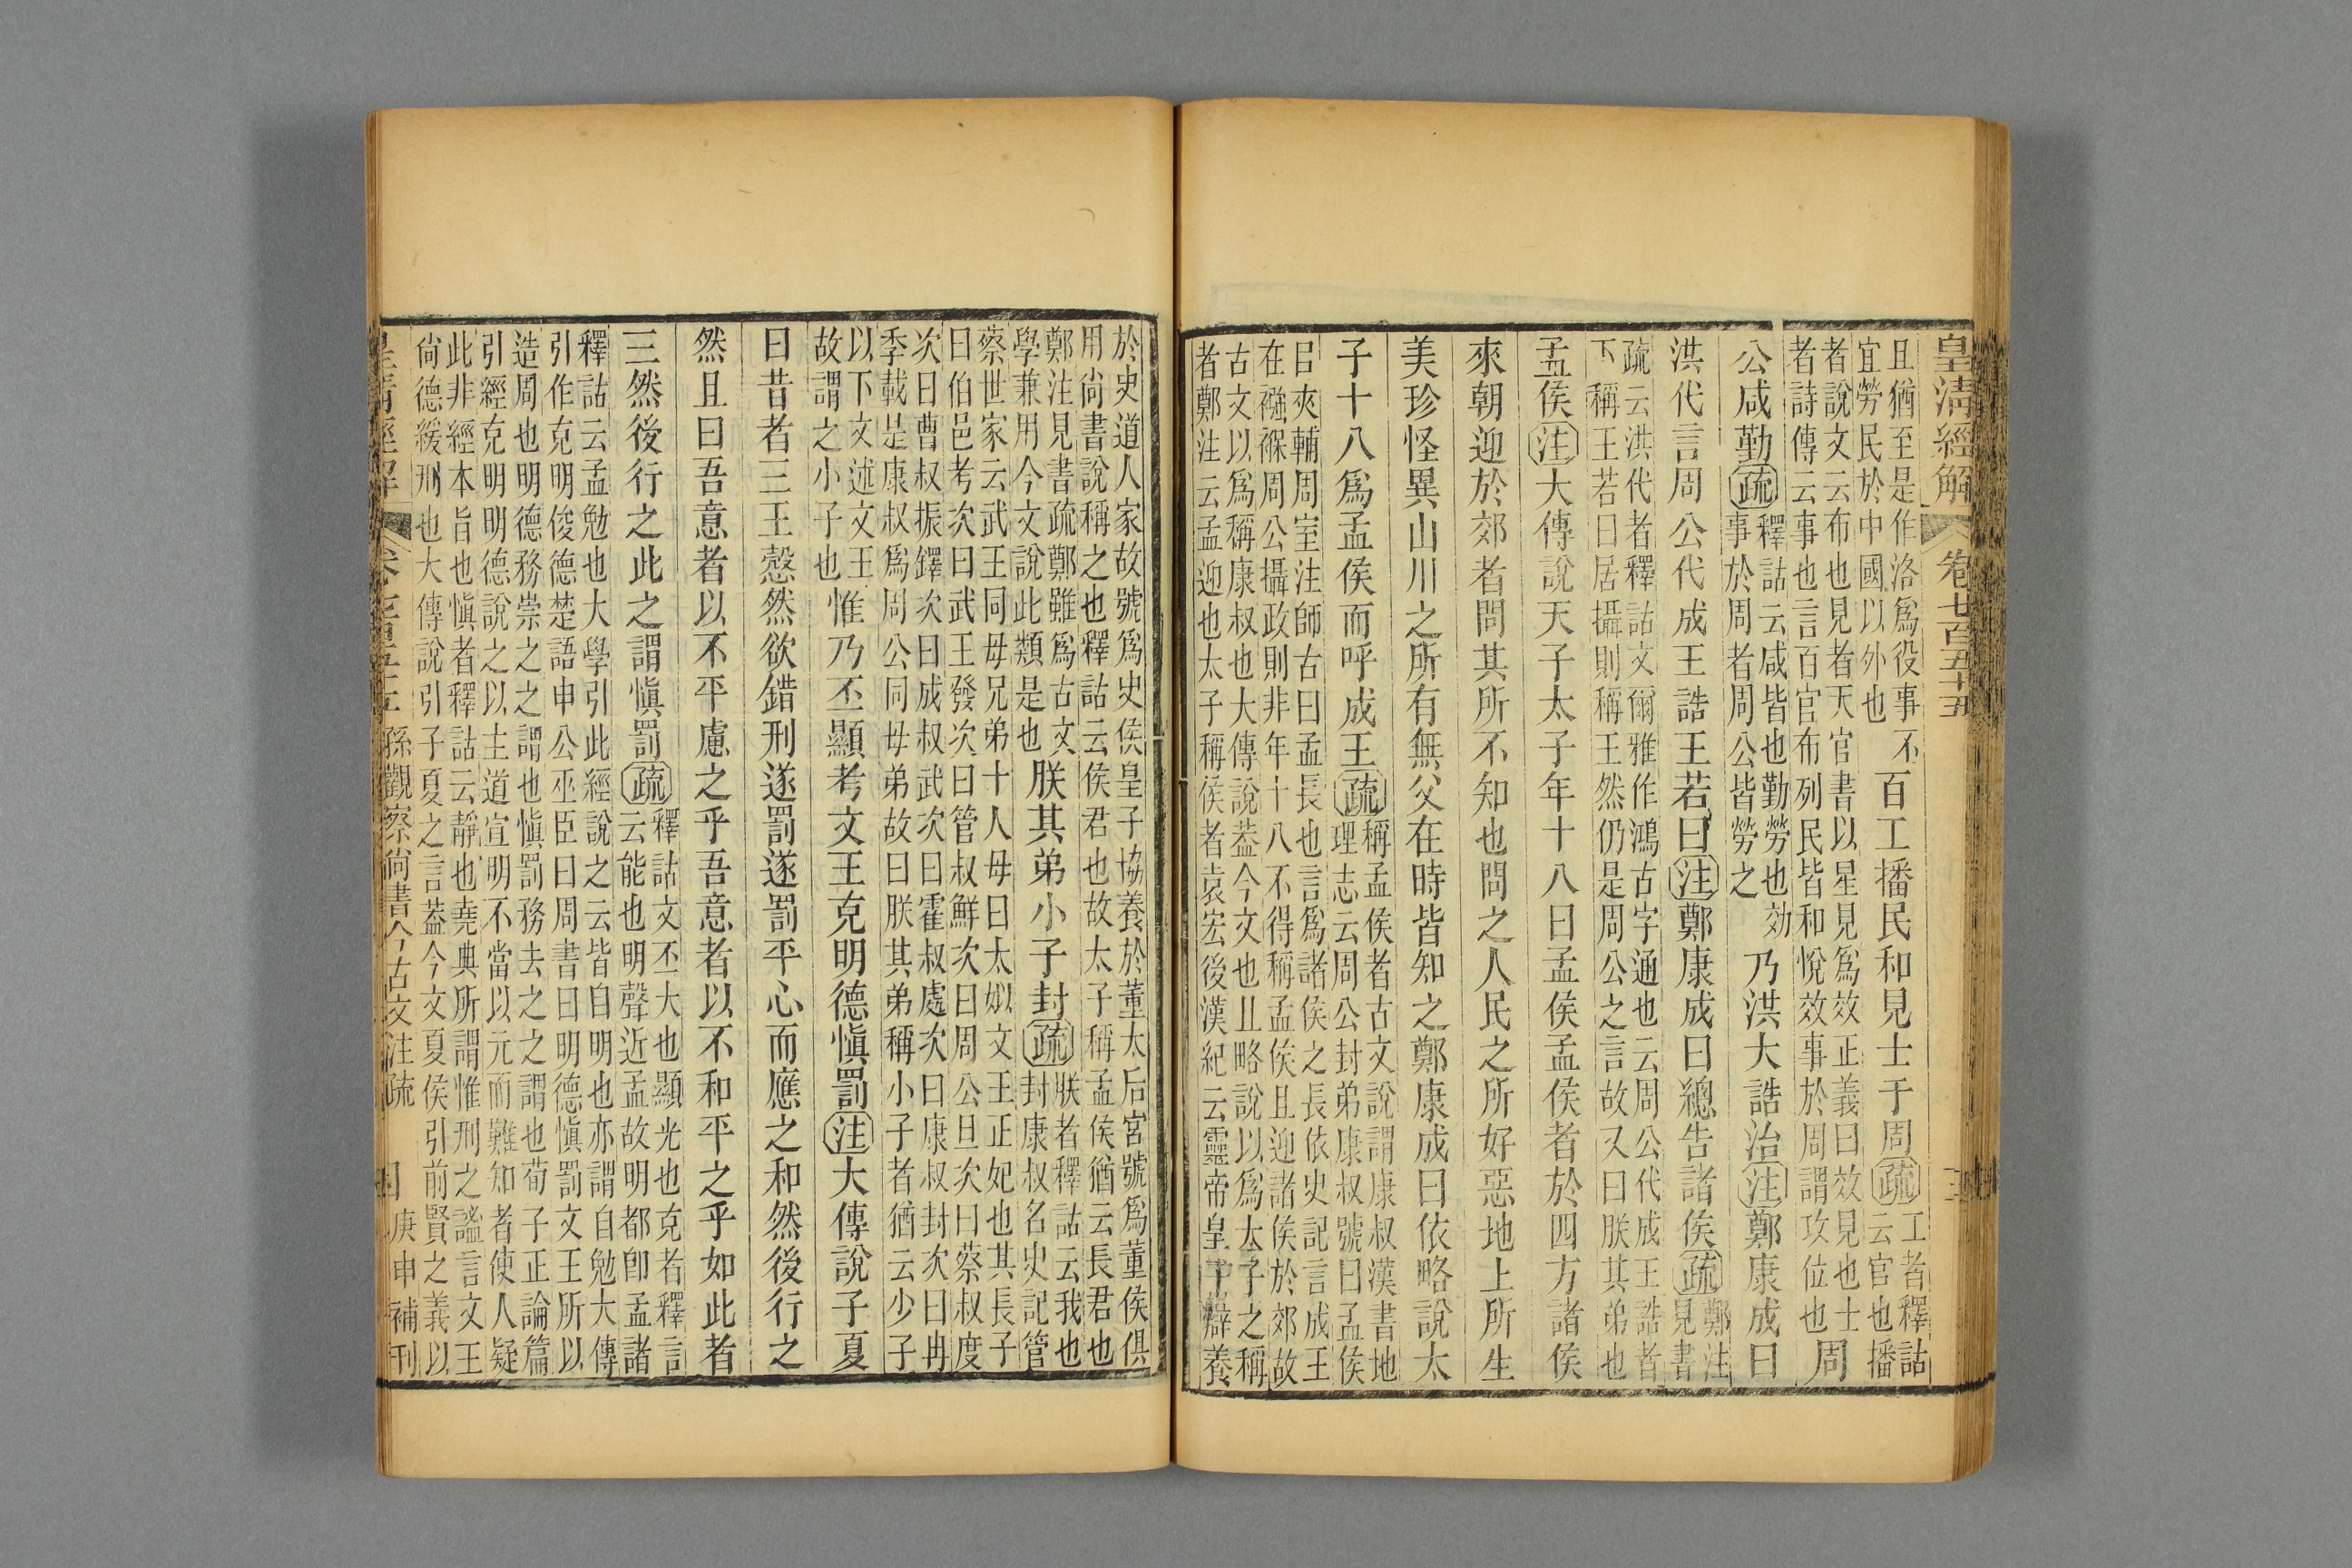 皇清經解 卷七百五十五 三
且猶至是作洛爲役事不
宜勞民於中國以外也
百工播民和見士于周疏
工者釋詁
云官也播
者說文云布也見者天官書以星見爲效正義曰效見也士
者詩傳云事也言百官布列民皆和悅效事於周謂攻位也
周
公咸勤疏
釋詁云咸皆也勤勞也効
事於周者周公皆勞之
乃洪大誥治注鄭康成曰
洪代言周公代成王誥王若曰注鄭康成曰總告諸侯疏
鄭注
見書
疏云洪代者釋詁文爾雅作鴻古字通也云周公代成王誥者
下稱王若曰居攝則稱王然仍是周公之言故又曰朕其弟也
孟侯注大傳說天子太子年十八曰孟侯孟侯者於四方諸侯
來朝迎於郊者問其所不知也問之人民之所好惡地上所生
美珍怪異山川之所有無父在時皆知之鄭康成曰依略說太
子十八爲孟侯而呼成王疏
稱孟侯者古文說謂康叔漢書地
理志云周公封弟康叔號曰孟侯
㠯夾輔周室注師古曰孟長也言爲諸侯之長依史記言成王
在襁褓周公攝政則非年十八不得稱孟侯且迎諸侯於郊故
古文以爲稱康叔也大傳說葢今文也且略說以爲太子之稱
者鄭注云孟迎也太子稱侯者袁宏後漢紀云靈帝皇子辯養
於史道人家故號爲史侯皇子協養於董太后宮號爲董侯俱
用尙書說稱之也釋詁云侯君也故太子稱孟侯猶云長君也
鄭注見書疏鄭雖爲古文
學兼用今文說此類是也
朕其弟小子封疏
朕者釋詁云我也
封康叔名史記管
蔡世家云武王同母兄弟十人母曰太姒文王正妃也其長子
曰伯邑考次曰武王發次曰管叔鮮次曰周公旦次曰蔡叔度
次曰曹叔振鐸次曰成叔武次曰霍叔處次曰康叔封次曰冉
季載是康叔爲周公同母弟故曰朕其弟稱小子者猶云少子
以下文述文王
故謂之小子也
惟乃丕顯考文王克明德愼罰注大傳說子夏
曰昔者三王慤然欲錯刑遂罰遂罰平心而應之和然後行之
然且曰吾意者以不平慮之乎吾意者以不和平之乎如此者
三然後行之此之謂愼罰疏
釋詁文丕大也顯光也克者釋言
云能也明聲近孟故明都卽孟諸
釋詁云孟勉也大學引此經說之云皆自明也亦謂自勉大傳
引作克明俊德楚語申公巫臣曰周書曰明德愼罰文王所以
造周也明德務崇之之謂也愼罰務去之之謂也荀子正論篇
引經克明明德說之以主道宣明不當以元而難知者使人疑
此非經本旨也愼者釋詁云靜也堯典所謂惟刑之謐言文王
尙德緩刑也大傳說引子夏之言葢今文夏侯引前賢之義以
皇清經解 卷七百五十五 孫觀察尙書今古文注疏 庚申補刊